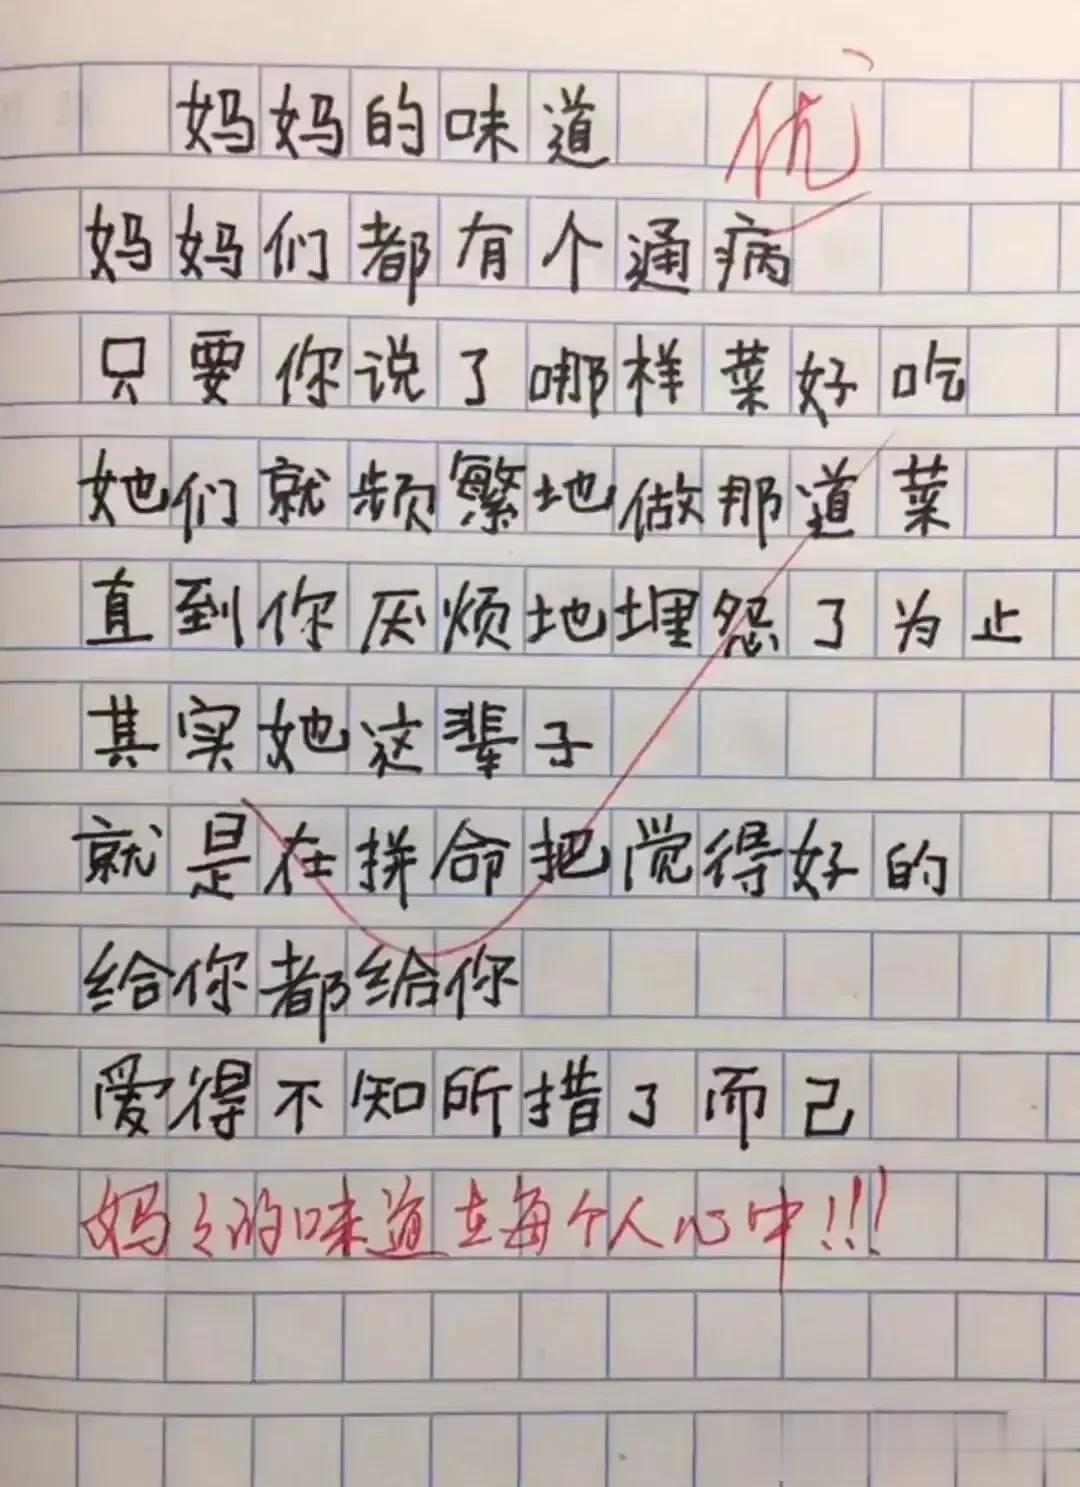 妈妈的味道 优
妈妈们都有个通病
只要你说了哪样菜好吃
她们就频繁地做那道菜
直到你厌烦地埋怨了为止
其实她这辈子
就是在拼命把觉得好的
给你都给你
爱得不知所措了而己
妈々的味道在每个人心中!!!